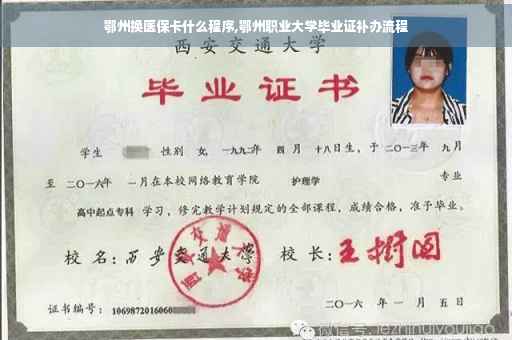 鄂州换医保卡什么程序,鄂州职业大学毕业证补办流程
西安交通大学
毕业证书
学生 性别 女, 一九九二年 四月 十八日生, 于 二〇一三年 九月
至 二〇一六年 一月在本校网络教育学院 护理学 专业
高中起点专科 学习, 修完教学计划规定的全部课程, 成绩合格, 准予毕业。
校名: 西安交通大学 校长: 王树国
西安交通大学
证书编号: 1069872016060
二〇一六年 一月 五日
微信号: jezhinuiyoujiao